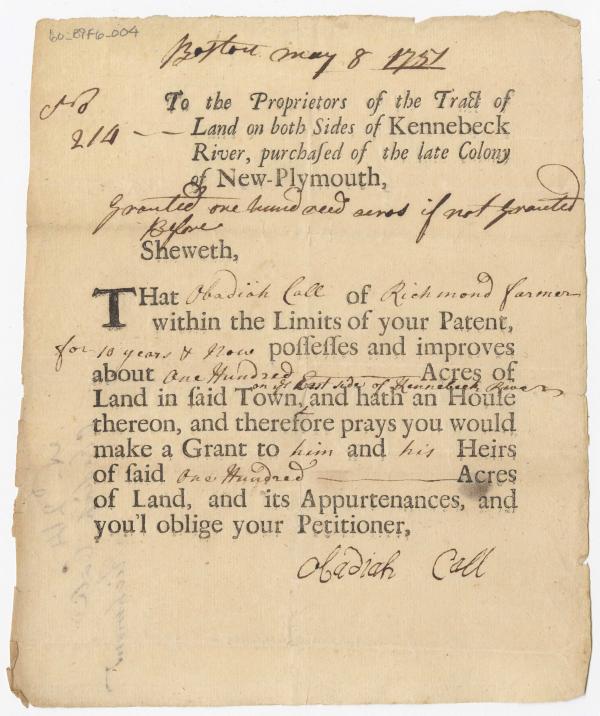 60_B9F6_004
Boston may 8 1751
No
214 — To the Proprietors of the Tract of
Land on both Sides of Kennebeck
River, purchaſed of the late Colony
of New-Plymouth,
Granted one hundred acres if not Granted
Before
Sheweth,
THat Obadiah Call of Richmond farmer
within the Limits of your Patent,
for 10 years & Now poſſeſſes and improves
about One Hundred Acres of
on ye East side of Kennebeck River
Land in ſaid Town, and hath an Houſe
thereon, and therefore prays you would
make a Grant to him and his Heirs
of ſaid One Hundred Acres
of Land, and its Appurtenances, and
you'l oblige your Petitioner,
Obadiah Call